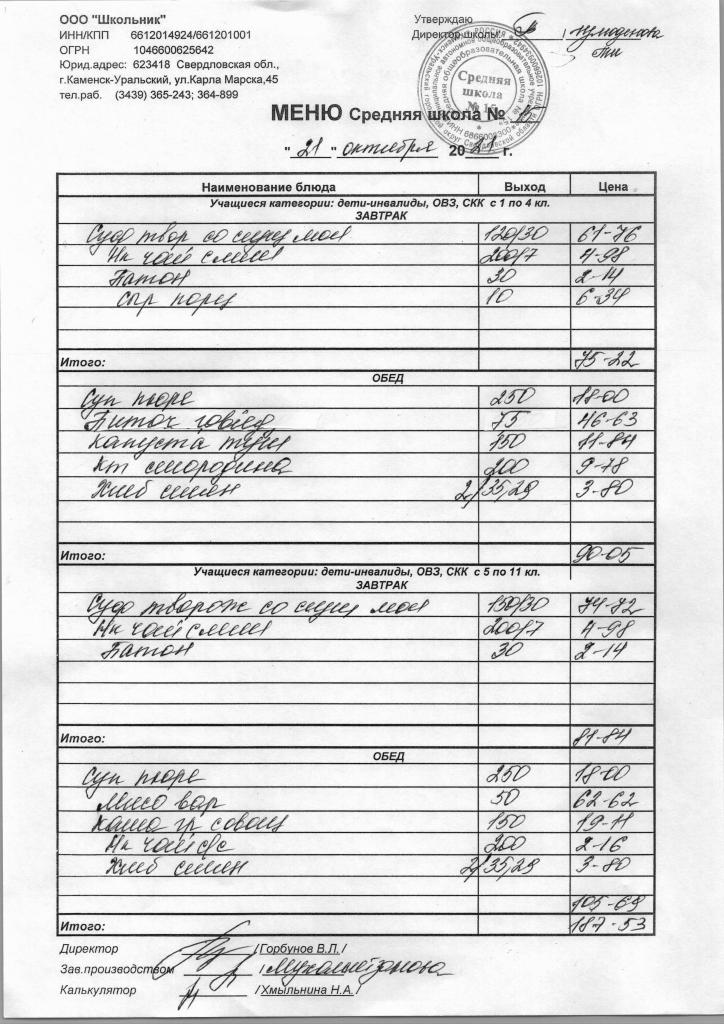 ООО "Школьник"
ИНН/КПП 6612014924/661201001
ОГРН 1046600625642
Юрид.адрес: 623418 Свердловская обл.,
г.Каменск-Уральский, ул.Карла Марска,45
тел.раб. (3439) 365-243; 364-899
Утверждаю
Директор школы
Средняя школа № 15
МЕНЮ Средняя школа № 15
"21" октября 2021 г.
Наименование блюда Выход Цена
Учащиеся категории: дети-инвалиды, ОВЗ, СКК с 1 по 4 кл.
ЗАВТРАК
Суфл твор со сгущ мол 120/30 61-76
Нк чай с лим 200/7 4-98
Батон 30 2-14
Сыр порц 10 6-34
Итого: 75-22
ОБЕД
Суп пюре 250 18-00
Биточ говяд 75 46-63
Капуста туш 150 11-84
Кт смородина 200 9-78
Хлеб 2/35,29 3-80
Итого: 90-05
Учащиеся категории: дети-инвалиды, ОВЗ, СКК с 5 по 11 кл.
ЗАВТРАК
Суфл творож со сгущ мол 150/30 74-72
Нк чай с лим 200/7 4-98
Батон 30 2-14
Итого: 81-84
ОБЕД
Суп пюре 250 18-00
Мясо вар 50 62-62
Каша гр с овощ 150 19-11
Нк чай с/с 200 2-16
Хлеб 2/35,29 3-80
105-69
Итого: 187-53
Директор /Горбунов В.Л./
Зав.производством /
Калькулятор /Хмыльнина Н.А./